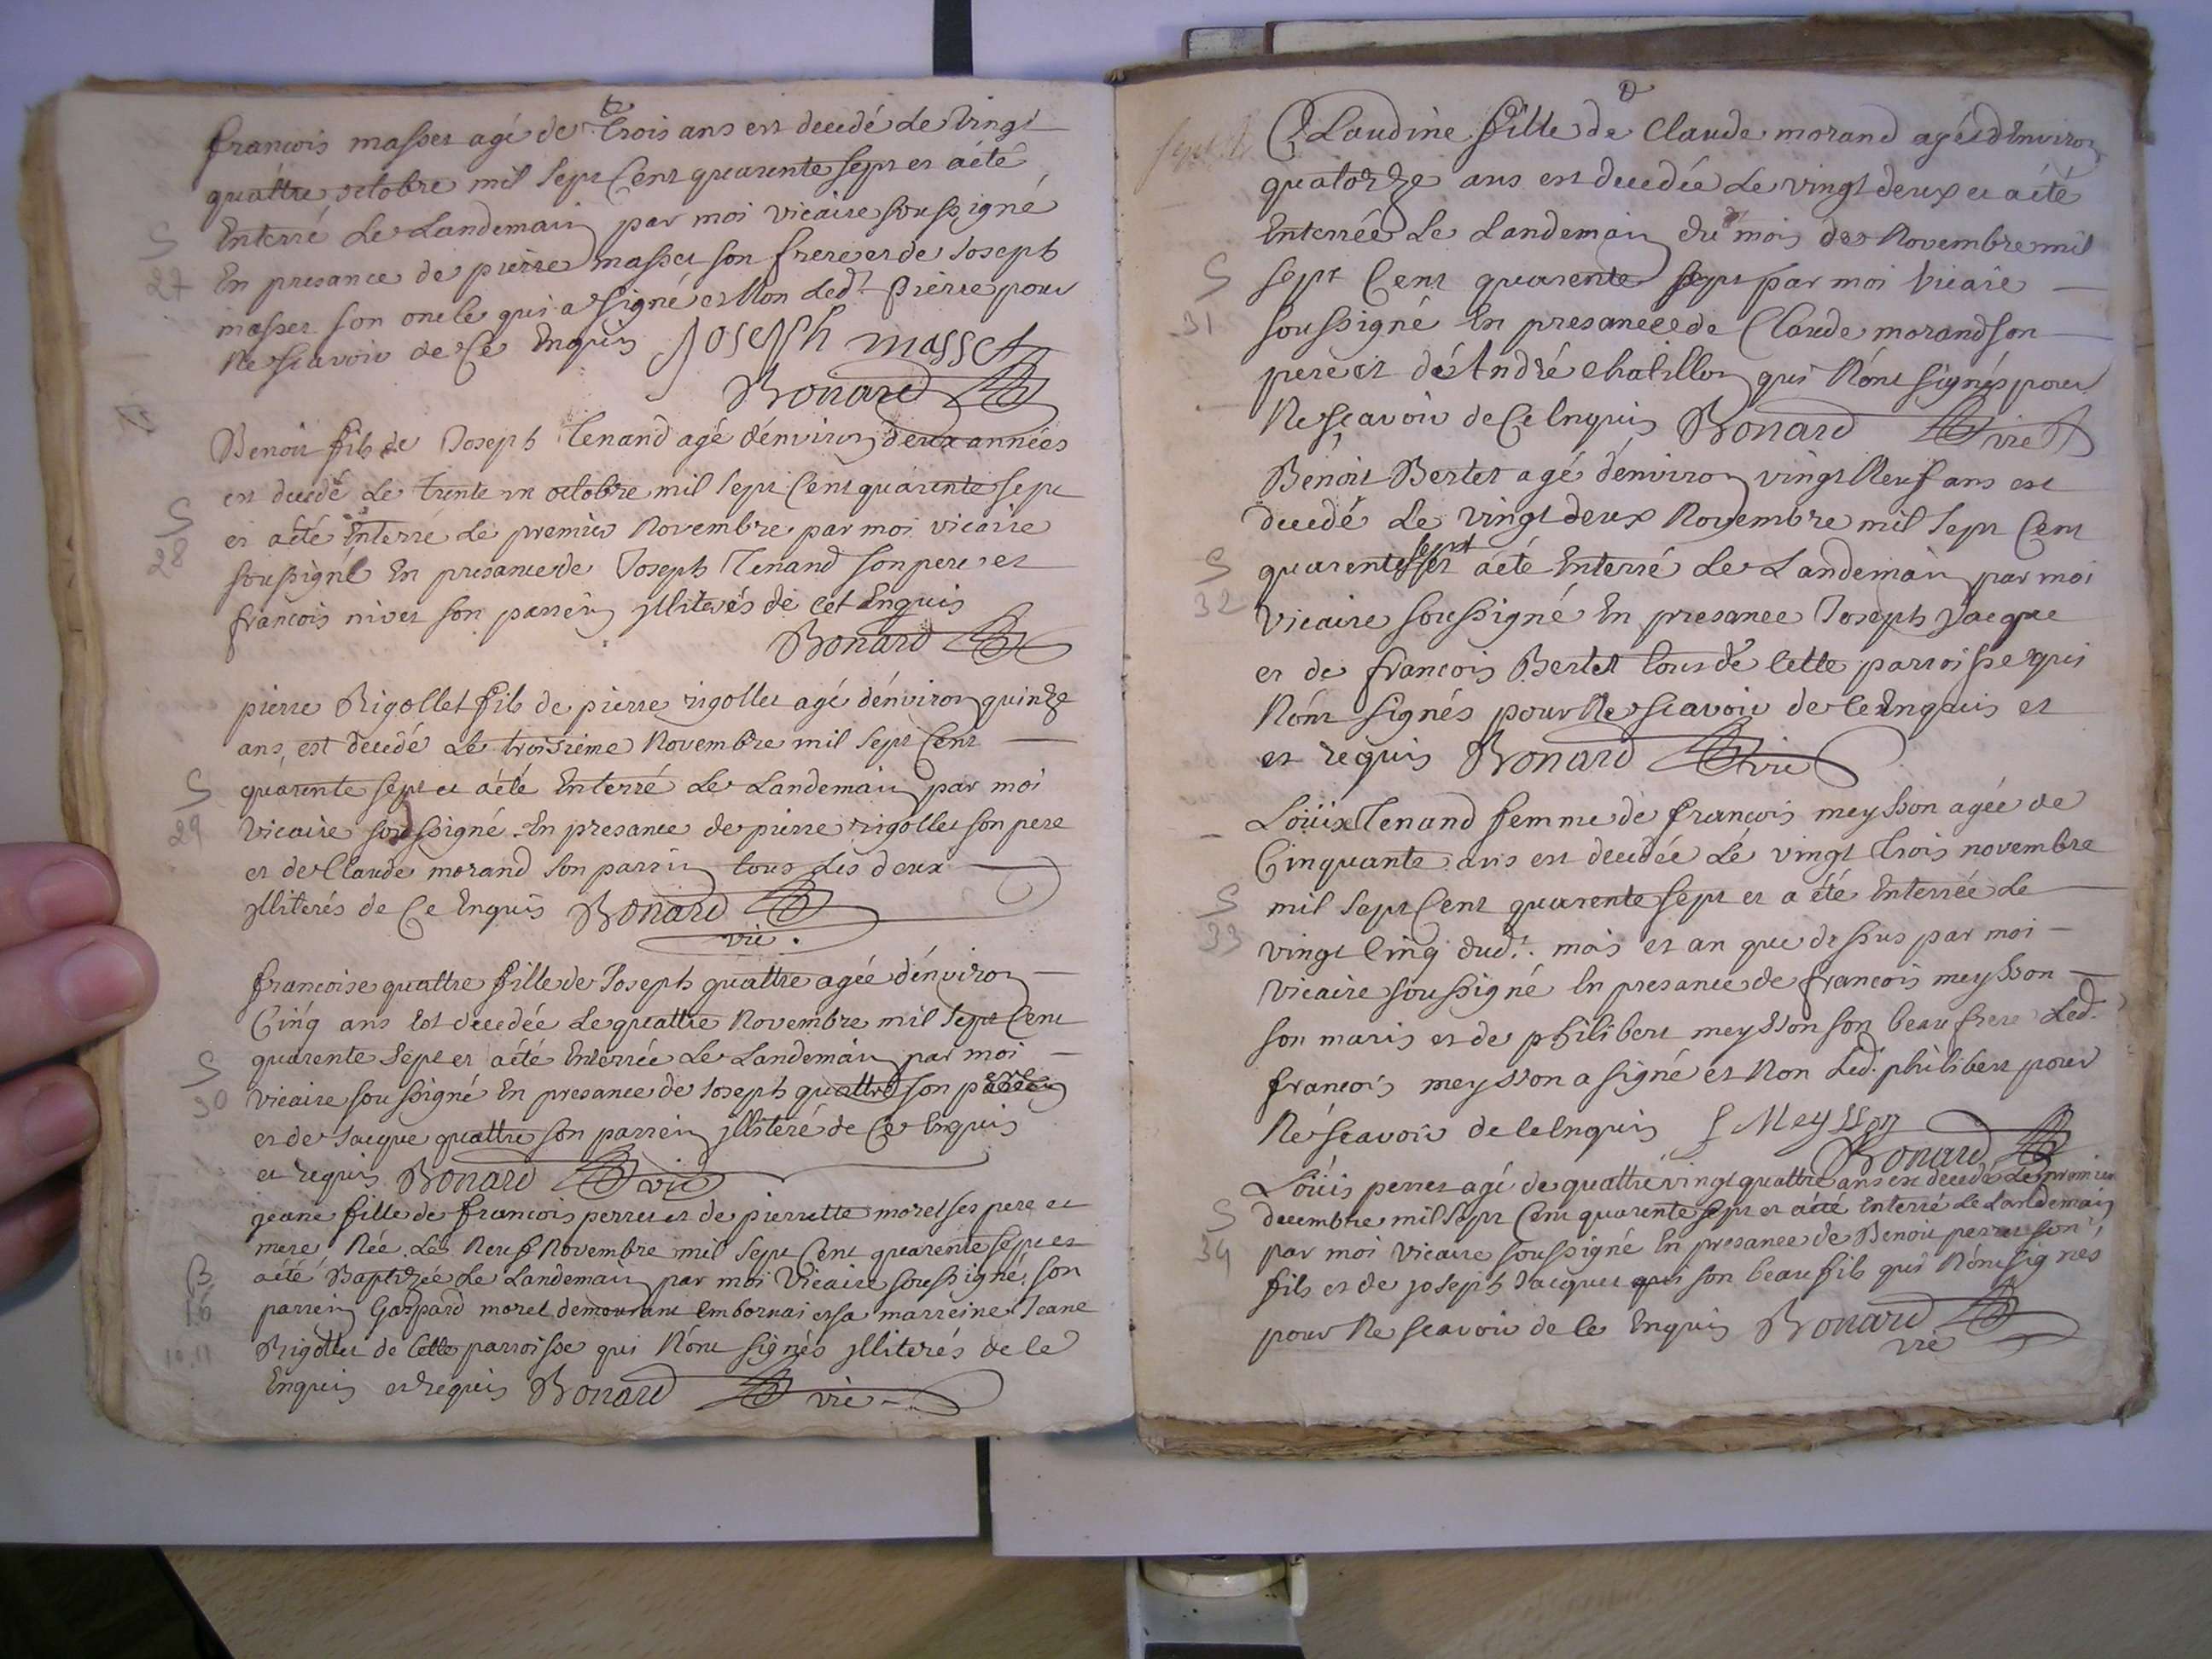 francois masset agé de trois ans est decedé le vingt
quattre octobre mil sept Cent quarente sept et a été
Enterré Le Landemain par moi vicaire soussigné
S
27
En presance de pierre masset son frere et de Joseph
masset son oncle qui a signé et Non Led.t pierre pour
Ne scavoir de Ce Enquis Joseph masset
Bonard
Benoit fils de Joseph Tenand agé d'environ deux années
est decedé Le trente un octobre mil sept Cent quarente sept
S
28
et a été Enterré Le premier Novembre par moi vicaire
soussigné En presance de Joseph Tenand son pere et
francois nivet son parrein jlliterés de cet Enquis
Bonard
pierre Rigollet fils de pierre rigollet agé d'environ quinze
ans, est decedé Le troisieme Novembre mil sept Cent
S
29
quarente sept et a été Enterré Le Landemain par moi
Vicaire soussigné En presance de pierre rigollet son pere
et de Claude morand son parrin tous Les deux
jlliterés de Ce Enquis Bonard
vic.
francoise quattre fille de Joseph quattre agée d'environ
Cinq ans Est decedée Le quattre Novembre mil sept Cent
S
30
quarente sept et a été Enterrée Le Landemain par moi
vicaire soussigné En presance de Joseph quattre son
et de Jacque quattre son parrein jlliteré de Ce Enquis
et requis Bonard vic
jeane fille de francois perret et de pierrette morel ses pere et
mere Née Le Neuf Novembre mil sept Cent quarente sept et
B
16
a été Baptizée Le Landemain par moi Vicaire soussigné, son
parrein Gaspard morel demourant Embornai et sa marreine Jeane
10.11
Rigollet de Cette parroisse qui N'ont signés jlliterés de Ce
Enquis et requis Bonard vic
Claudine fille de Claude morand agée d'Environ
quatorze ans est decedée Le vingt deux et a été
Enterrée Le Landemain du mois de Novembre mil
S
31
sept Cent quarente sept par moi Vicaire
soussigné En presance de Claude morand son
pere et de André chatillon qui N'ont signés pour
Ne sçavoir de Ce Enquis Bonard vic
Benoit Bertet agé d'environ vingt Neuf ans est
decedé Le vingt deux Novembre mil sept Cent
S
32
quarente sept et a été Enterré Le Landemain par moi
Vicaire soussigné En presance Joseph Jacque
et de francois Bertet tous de Cette parroisse qui
N'ont signés pour Ne scavoir de Ce Enquis et
et requis Bonard vic
Loüise Tenand femme de francois meysson agée de
Cinquante ans est decedée Le vingt trois novembre
S
33
mil sept Cent quarente sept et a été Enterrée Le
vingt Cinq dud.t mois et an que dessus par moi
Vicaire soussigné En presance de francois meysson
son maris et de philibert meysson son beau frere Led.
francois meysson a signé et Non Led. philibert pour
Ne scavoir de Ce Enquis f Meysson
Bonard
Loüis perret agé de quattre vingt quattre ans est decedé Le premier
S
34
decembre mil sept Cent quarente sept et a été Enterré Le Landemain
par moi Vicaire soussigné En presance de Benoit perret son
fils et de joseph Jacquet qui son beau fils qui N'ont signés
pour Ne scavoir de Ce Enquis Bonard
vic